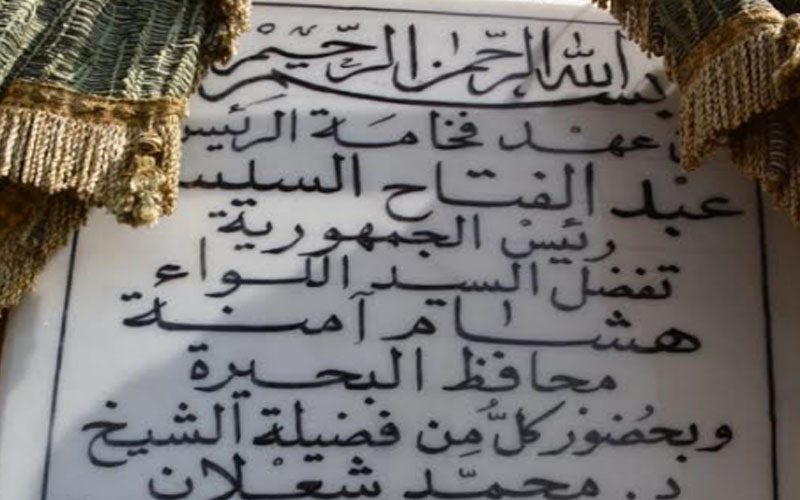 بسم الله الرحمن الرحيم
عهد فخامة الرئيس
عبد الفتاح السيسي
رئيس الجمهورية
تفضل السيد اللواء
هشام آمنة
محافظ البحيرة
وبحضور كلٌّ من فضيلة الشيخ
محمد شعلان